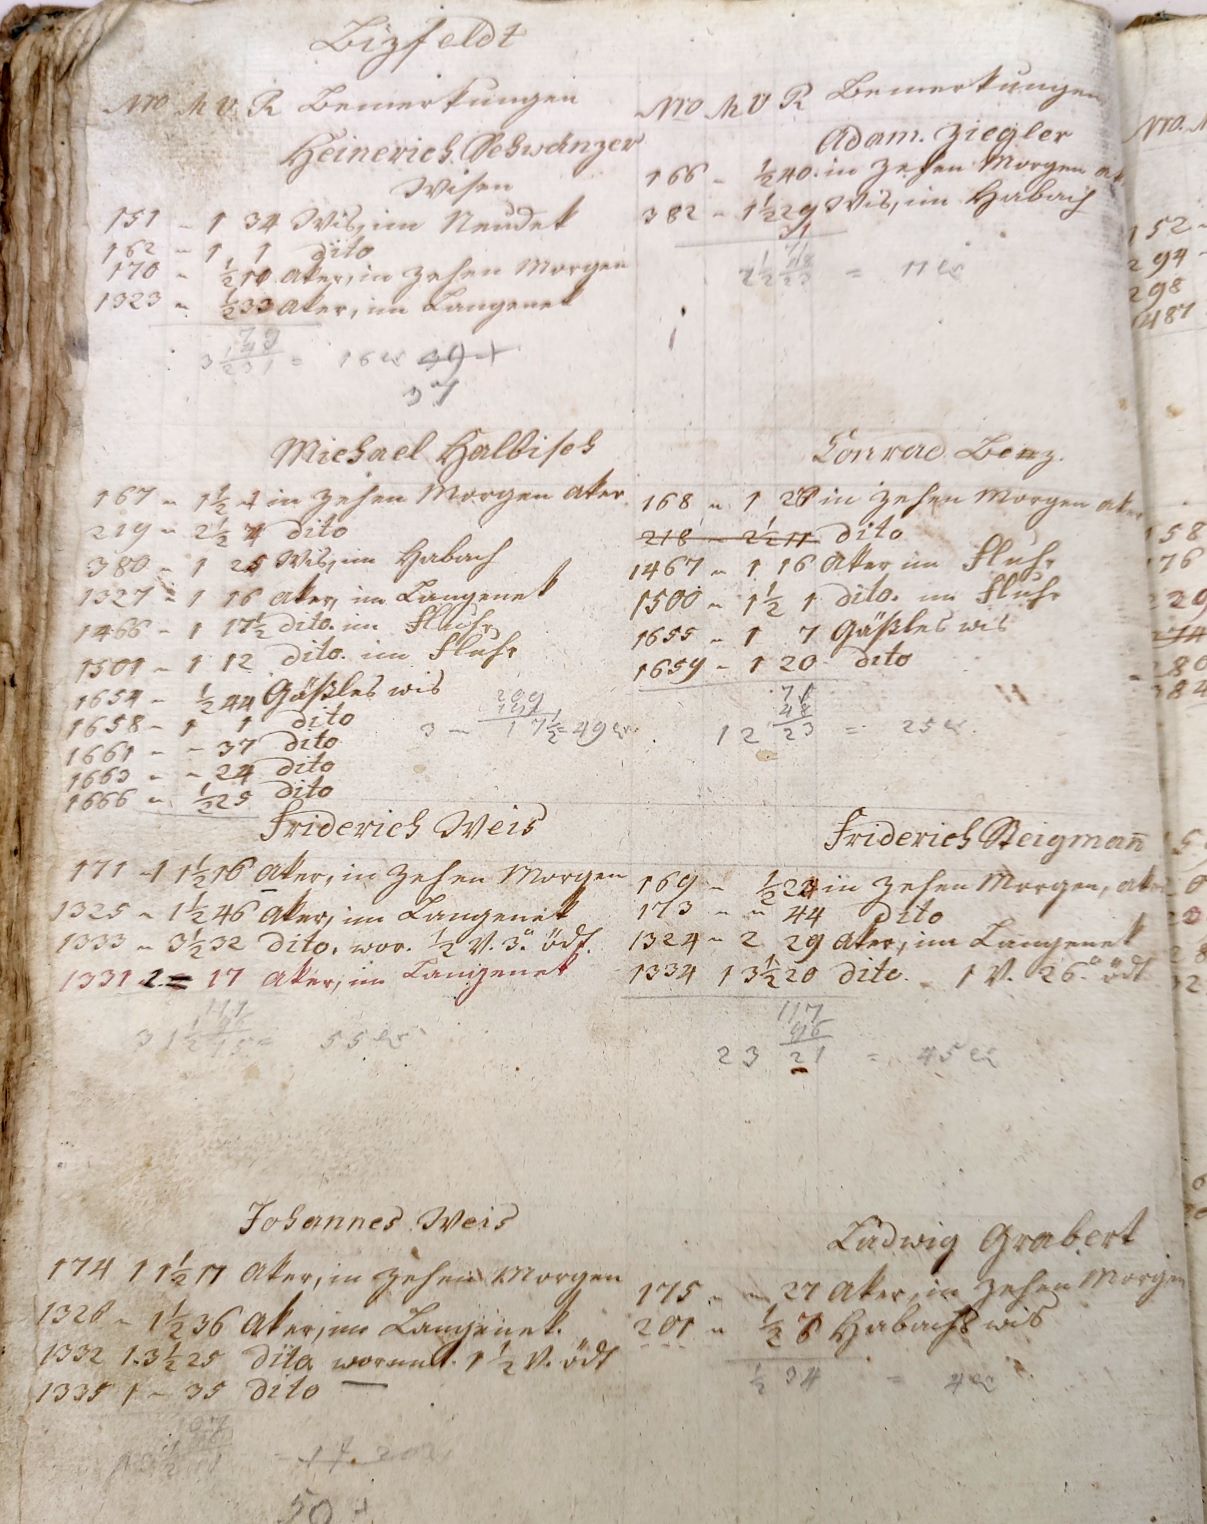 Bizfeldt
Nro M V. R Bemerkungen
Heinerich Schwänzer
Wisen
151 - 1 34 Wis, im Neudek
162 - 1 1 dito
170 - ½ 10 aker, in Zehen Morgen
1323 - ½ 33 aker, im Langenek
= 16
37
Michael Halbisch
167 - 1½ 1 in Zehen Morgen aker
219 - 2½ 4 dito
380 - 1 25 Wis, im Habach
1327 - 1 16 aker, im Langenek
1466 - 1 17½ dito. im Fluhr
1501 - 1 12 dito. im Fluhr
1654 - ½ 44 Gäßles wis
1658 - 1 1 dito
1661 - - 37 dito
1663 - - 24 dito
1666 - ½ 25 dito
3 - 17½ = 49
Friderich Weis
171 - 1 1½ 16 aker, in Zehen Morgen
1325 - 1½ 46 aker, im Langenek
1333 - 3½ 32 dito, wor. ½ V. 3. ödt.
1331 2 = 17 aker, im Langenek
3 1½ 15 = 55
Johannes Weis
174 1 1½ 17 aker, in Zehen Morgen
1326 - 1½ 36 aker, im Langenek.
1332 1. 3½ 25 dito 1½ V. ödt
1335 1 - 35 dito
50
Nro M V R Bemerkungen
Adam. Ziegler
166 - ½ 40. in Zehen Morgen
382 - 1½ 29 Wis, im Habach
2½ 23 = 11
Conrad Benz.
168 - 1 28 in Zehen Morgen
218 - 2½ 11 dito
1467 - 1 16 aker im Fluhr
1500 - 1½ 1 dito. im Fluhr
1655 - 1 7 Gäßles wis
1659 - 1 20 dito
1 2 23 = 25
Friderich Steigmañ
169 - ½ 24 in Zehen Morgen,
173 - - 44 dito
1324 - 2 29 aker, im Langenek
1334 1 3½ 20 dito. 1 V. 26. ödt
117
96
2 3 21 = 45
Ludwig Grabert
175 - - 27 aker, in Zehen Morgen
201 - ½ 7 Habachs wis
½ 34 = 4